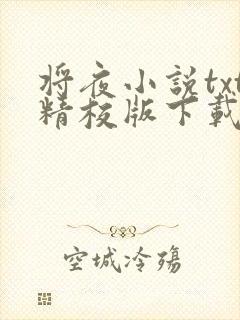 将夜小説txt
精校版下載
空城冷殤